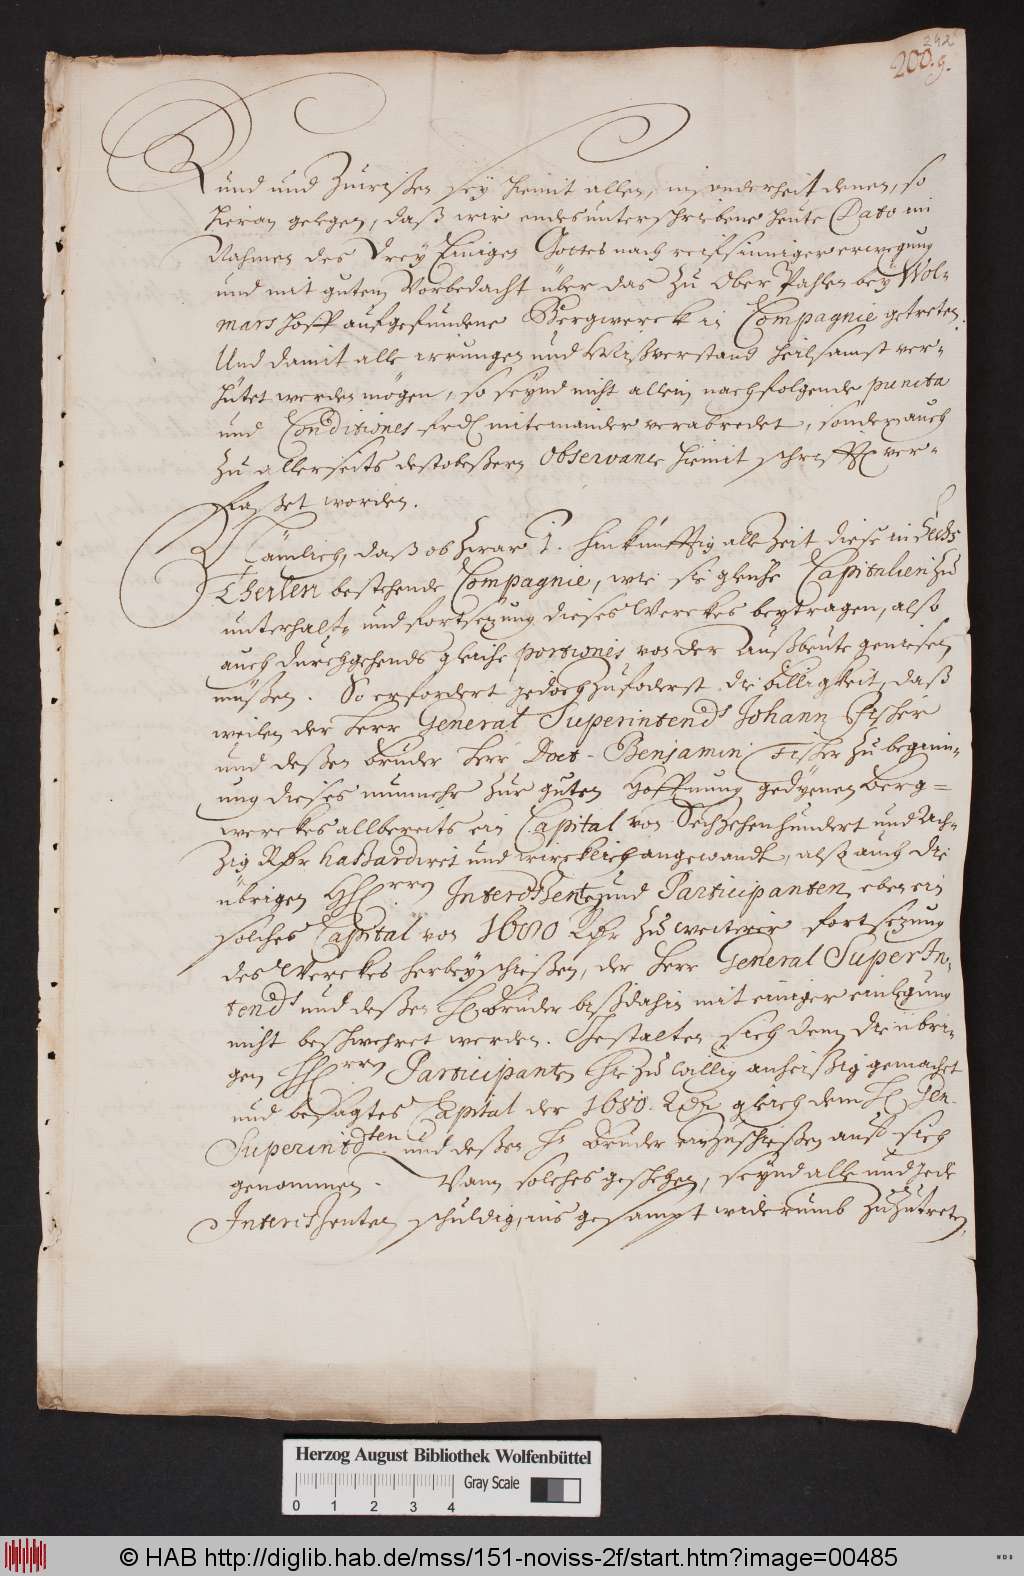 242
200. g.
Kund und Zuwißen sey hiemit allen, insonderheit denen, so
hieran gelegen, daß wir endesunterschriebene heute Dato im
Nahmen des Drey Einigen Gottes nach reiffsinniger erwegung
und mit gutem Vorbedacht über das zu Ober Pahlen bey Wol-
mars hoff aufgefundene Bergwerck in Compagnie getreten.
Und damit alle irrungen und Mißverstand heilsamst ver-
hütet werden mögen, so seynd nicht allein nachfolgende puncta
und Conditiones miteinander verabredet, sondern auch
zu allerseits destobeßern Observance hiemit schrifftl. ver-
faßet worden.
Nämlich, daß ob zwar 1. hinkünfftig alle Zeit diese in Sechs
Theilen bestehende Compagnie, wie sie gleiche Capitalien zu
unterhalt- und fortsezung dieses Werckes beytragen, also
auch durchgehends gleiche portiones von der Außbeute geniesen
müßen. So erfordert jedoch zufoderst die billigkeit, daß
weilen der Herr General Superintends Johann Fischer
und deßen bruder Herr Doct. Benjamin Fischer zu beginn-
ung dieses nunmehr zur guten Hoffnung gedyenen berg=
werckes allbereits ein Capital von Sechzehenhundert und Ach-
zig Rthr hazardiret und wircklich angewandt, also auch die
übrigen HH.rrn Interessenten und Participanten eben ein
solches Capital von 1680 Rthr zu weiterer fortsezung
des Werckes herbeyschießen, der Herr General SuperIn-
tends und deßen H. Bruder biß dahin mit einiger einlegung
nicht beschwehret werden. Gestalten sich denn die übri-
gen HH.rrn Participanten hiezu willig anheischig gemachet
und besagtes Capital der 1680. Rthr gleich dem H. Gen.
Superintdten und deßen H. Bruder einzuschießen auf sich
genommen. Wann solches geschehen, seynd alle und Jede
Interessenten schuldig, ins gesampt widerumb zuzutreten,
Herzog August Bibliothek Wolfenbüttel
Gray Scale
0 1 2 3 4
© HAB http://diglib.hab.de/mss/151-noviss-2f/start.htm?image=00485